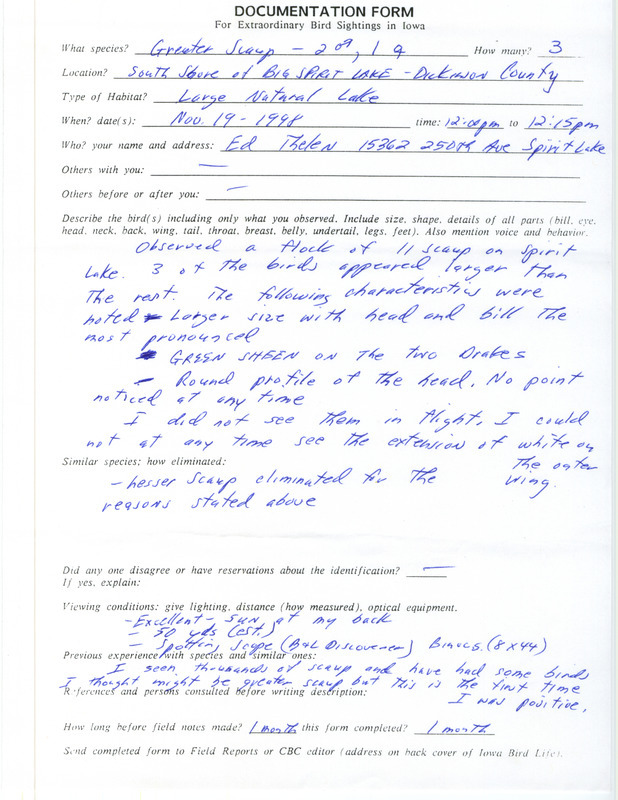 DOCUMENTATION FORM
For Extraordinary Bird Sightings in Iowa
What species? Greater Scaup - 2 ♂♂, 1 ♀ How many? 3
Location? South Shore of BIG SPIRIT LAKE - Dickinson County
Type of Habitat? Large Natural Lake
When? date(s): Nov. 19 - 1998 time: 12:00pm to 12:15pm
Who? your name and address: Ed Thelen 15362 250th Ave Spirit Lake
Others with you: —
Others before or after you: —
Describe the bird(s) including only what you observed. Include size, shape, details of all parts (bill, eye,
head, neck, back, wing, tail, throat, breast, belly, undertail, legs, feet). Also mention voice and behavior.
Observed a flock of 11 scaup on Spirit
Lake. 3 of the birds appeared larger than
the rest. The following characteristics were
noted - Larger size with head and bill the
most pronounced
- GREEN SHEEN ON The two Drakes
- Round profile of the head. No point
noticed at any time
I did not see them in flight. I could
not at any time see the extension of white on
the outer
wing.
Similar species; how eliminated:
- Lesser Scaup eliminated for the
reasons stated above
Did any one disagree or have reservations about the identification? —
If yes, explain:
Viewing conditions: give lighting, distance (how measured), optical equipment.
- Excellent - sun at my back
- 50 yds (est.)
- Spotting Scope (B&L Discoverer) Binocs. (8x44)
Previous experience with species and similar ones:
I seen thousands of scaup and have had some birds
I thought might be greater scaup but this is the first time
I was positive.
References and persons consulted before writing description:
How long before field notes made? 1 month this form completed? 1 month
Send completed form to Field Reports or CBC editor (address on back cover of Iowa Bird Life).